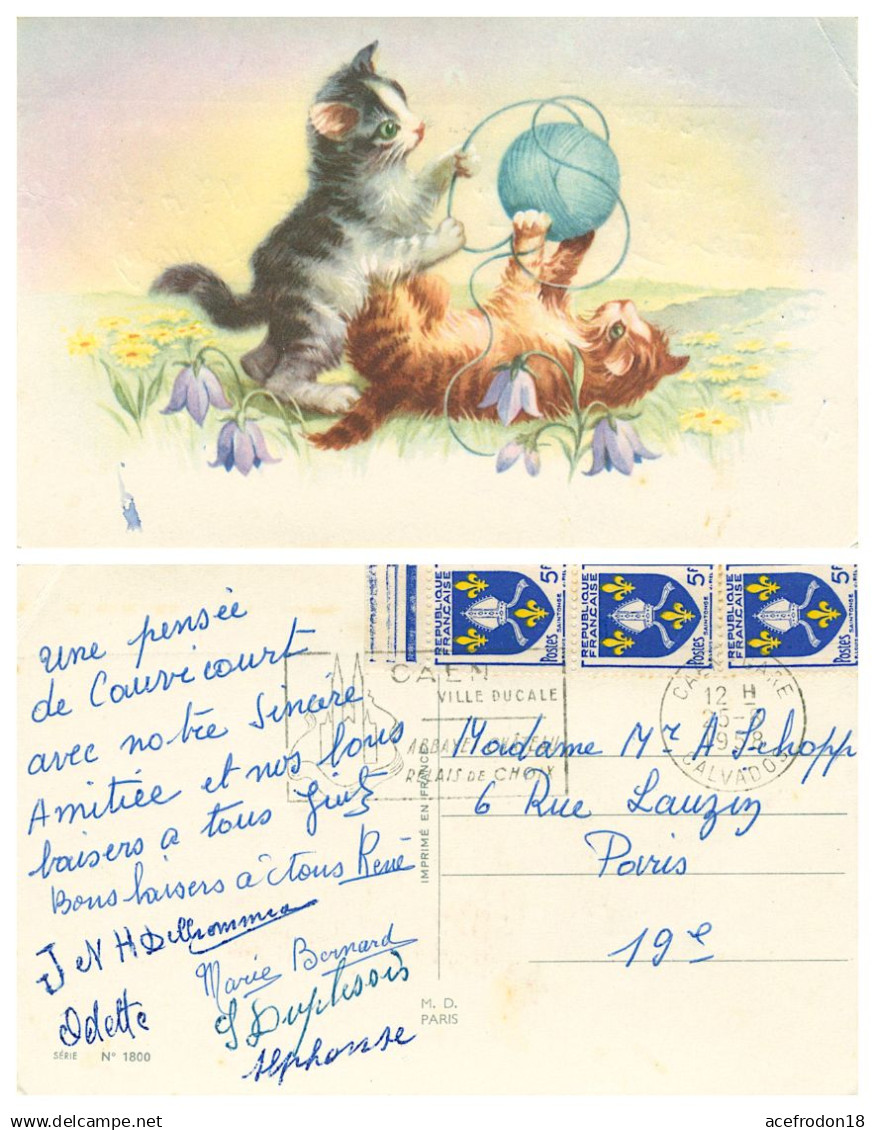 Une pensée
de Cauvicourt
avec notre Sincère
Amitiée et nos bons
baisers a tous
Bons baisers a tous René
J et H Delhommea
Marie Bernard
Odette
S Duplessis
Alphonse
SÉRIE N° 1800
M. D.
PARIS
IMPRIMÉ EN FRANCE
5F
REPUBLIQUE FRANÇAISE
SAINTONGE
Postes
5F
REPUBLIQUE FRANÇAISE
SAINTONGE
Postes
5F
REPUBLIQUE FRANÇAISE
SAINTONGE
Postes
CAEN
VILLE DUCALE
ABBAYES CHÂTEAU
RELAIS DE CHOIX
CAEN GARE
12 H
1958
CALVADOS
Madame Mr A Schopp
6 Rue Lauzin
Paris
19e
delcampe.net
acefrodon18